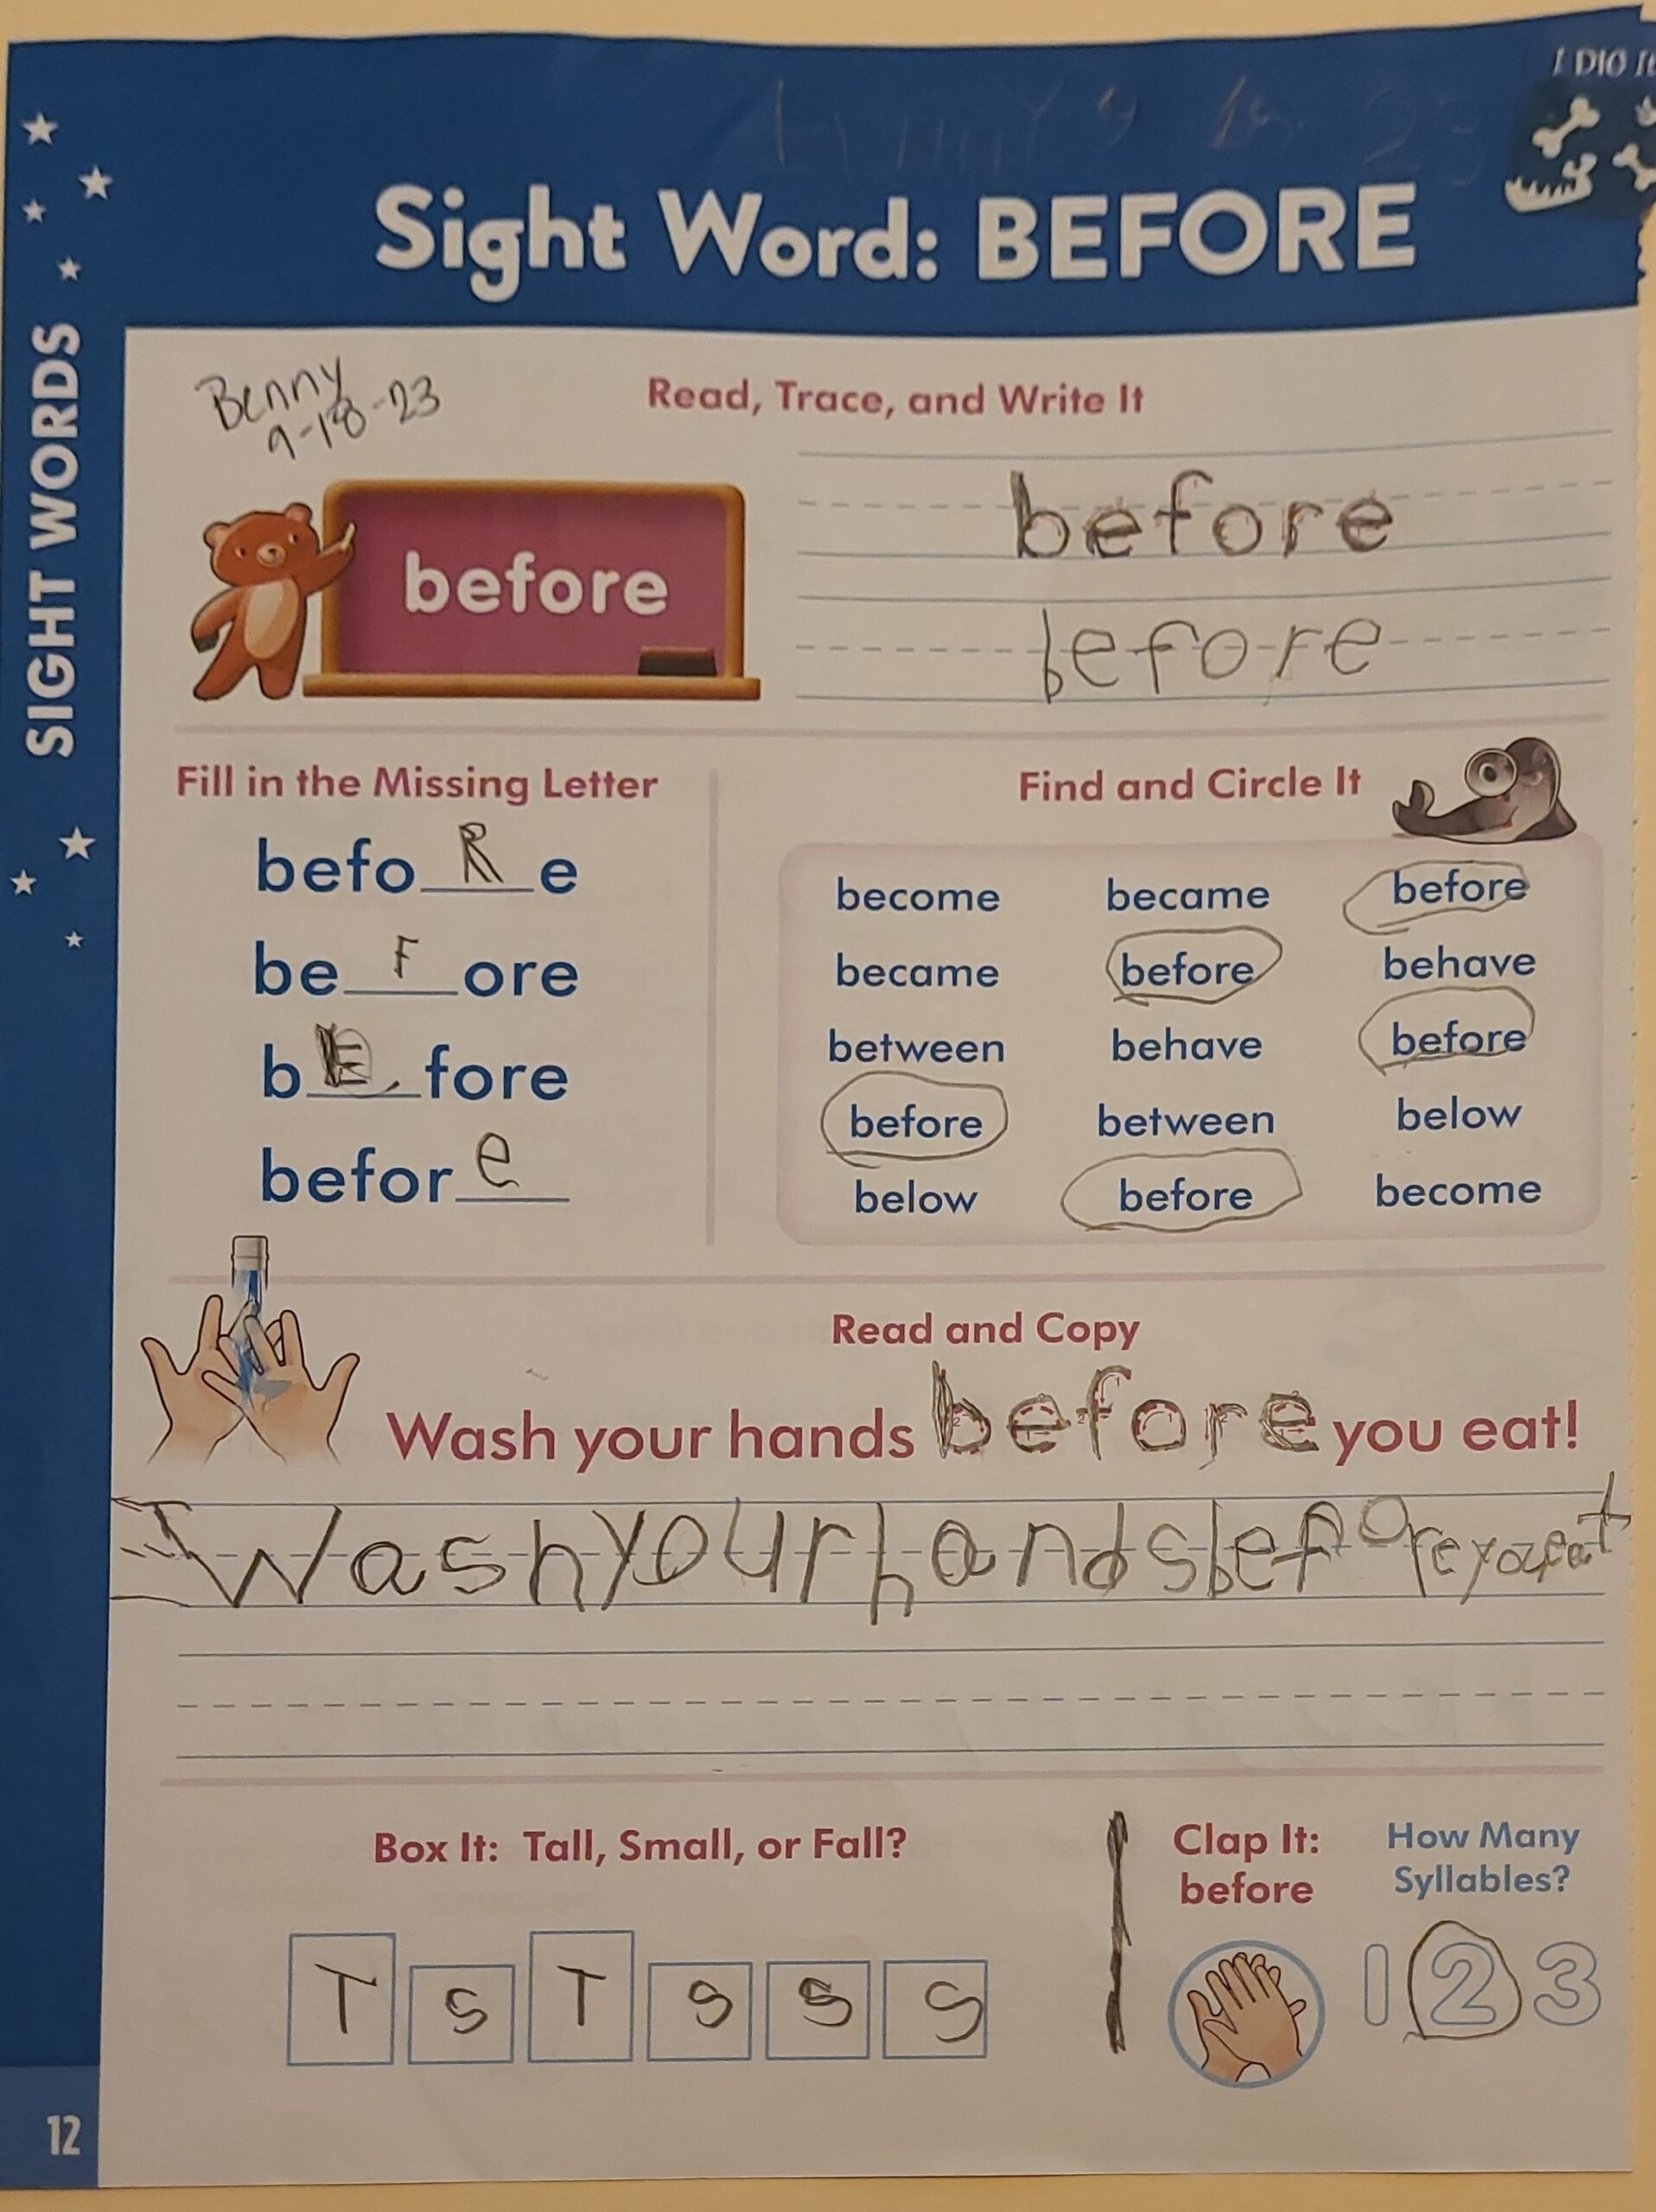 I DIG It
Sight Word: BEFORE
SIGHT WORDS
Benny
9-18-23
Read, Trace, and Write It
before
before
before
Fill in the Missing Letter
befo R e
be F ore
b E fore
befor e
Find and Circle It
become became before
became before behave
between behave before
before between below
below before become
Read and Copy
Wash your hands before you eat!
Wash your hands before
Box It: Tall, Small, or Fall?
T S T S S S
Clap It:
before
How Many
Syllables?
1 2 3
12